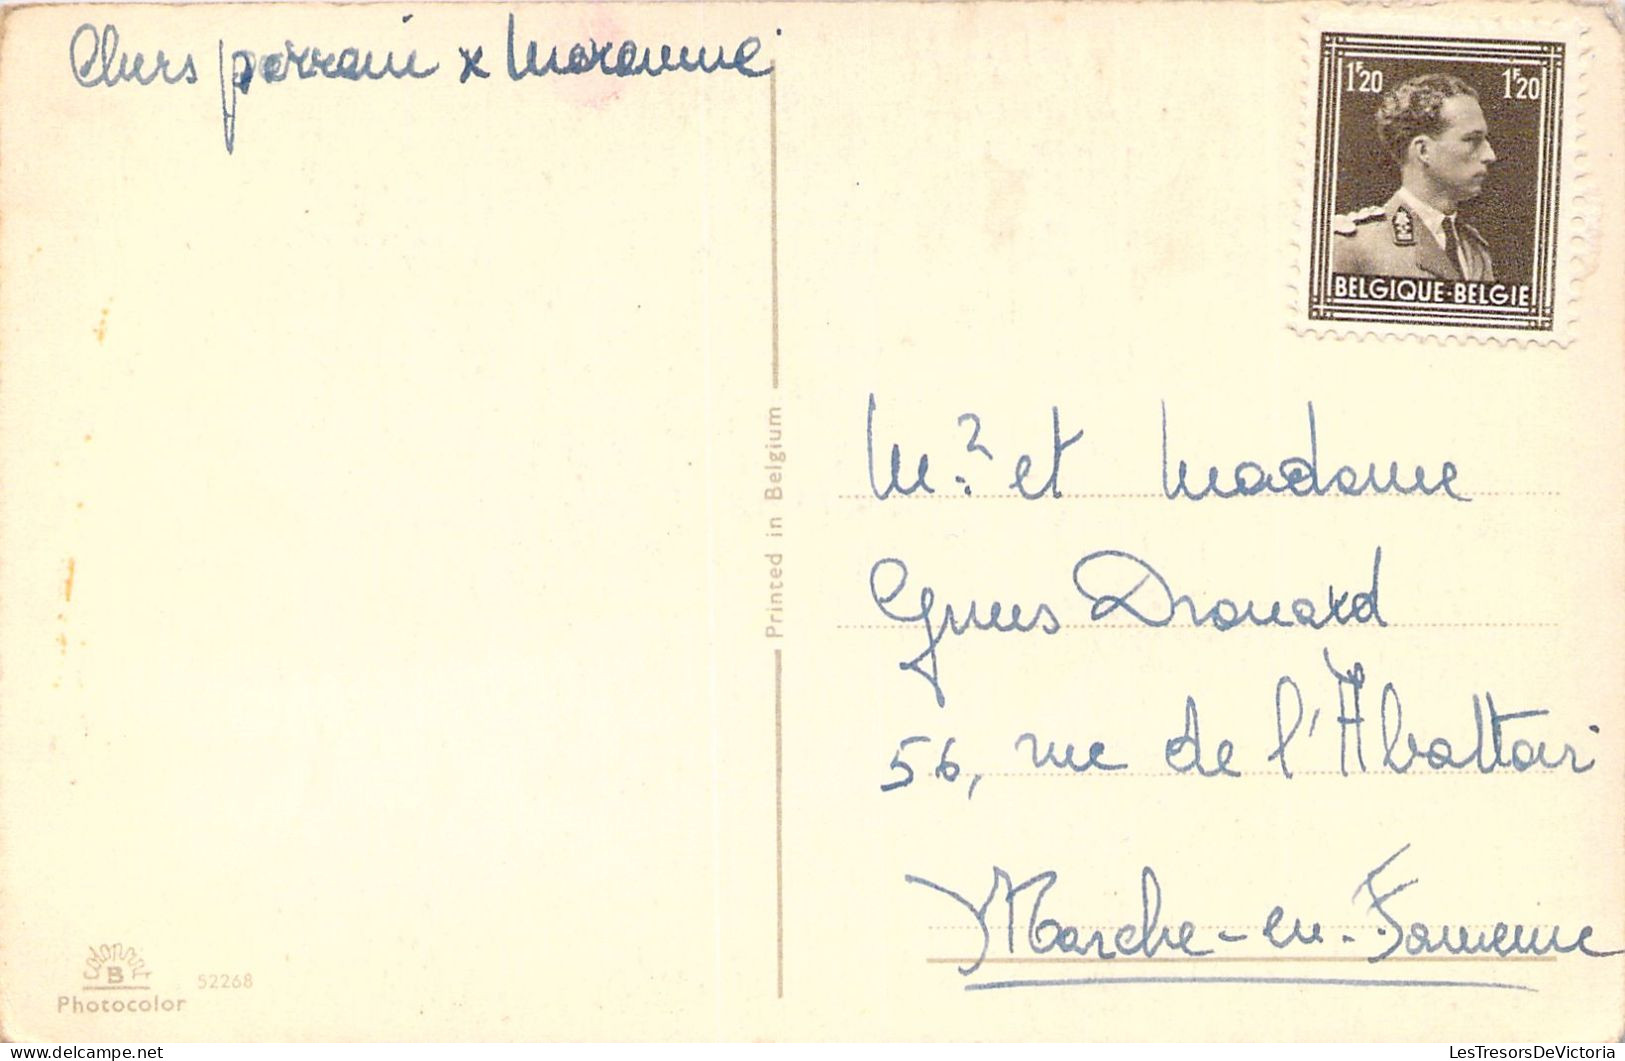 Chers parrain x Maraine
1F20 1F20
BELGIQUE-BELGIE
Printed in Belgium
Mr. et Madame
Drouard
56, rue de l'Abattoir
Marche-en-Famenne
colorprint
B
52268
Photocolor
LesTresorsDeVictoria